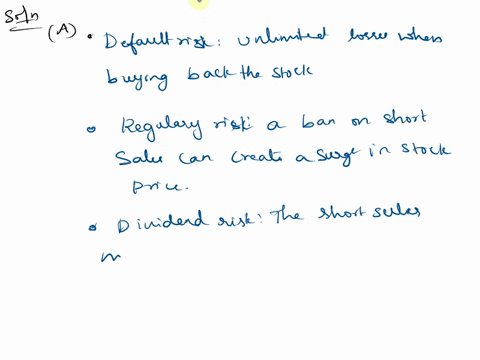 Soln
(A) • Default risk: unlimited losses when
buying back the stock
• Regulary risk: a ban on short
Sales can create a surge in stock
price.
• Dividend risk: The short sales
m